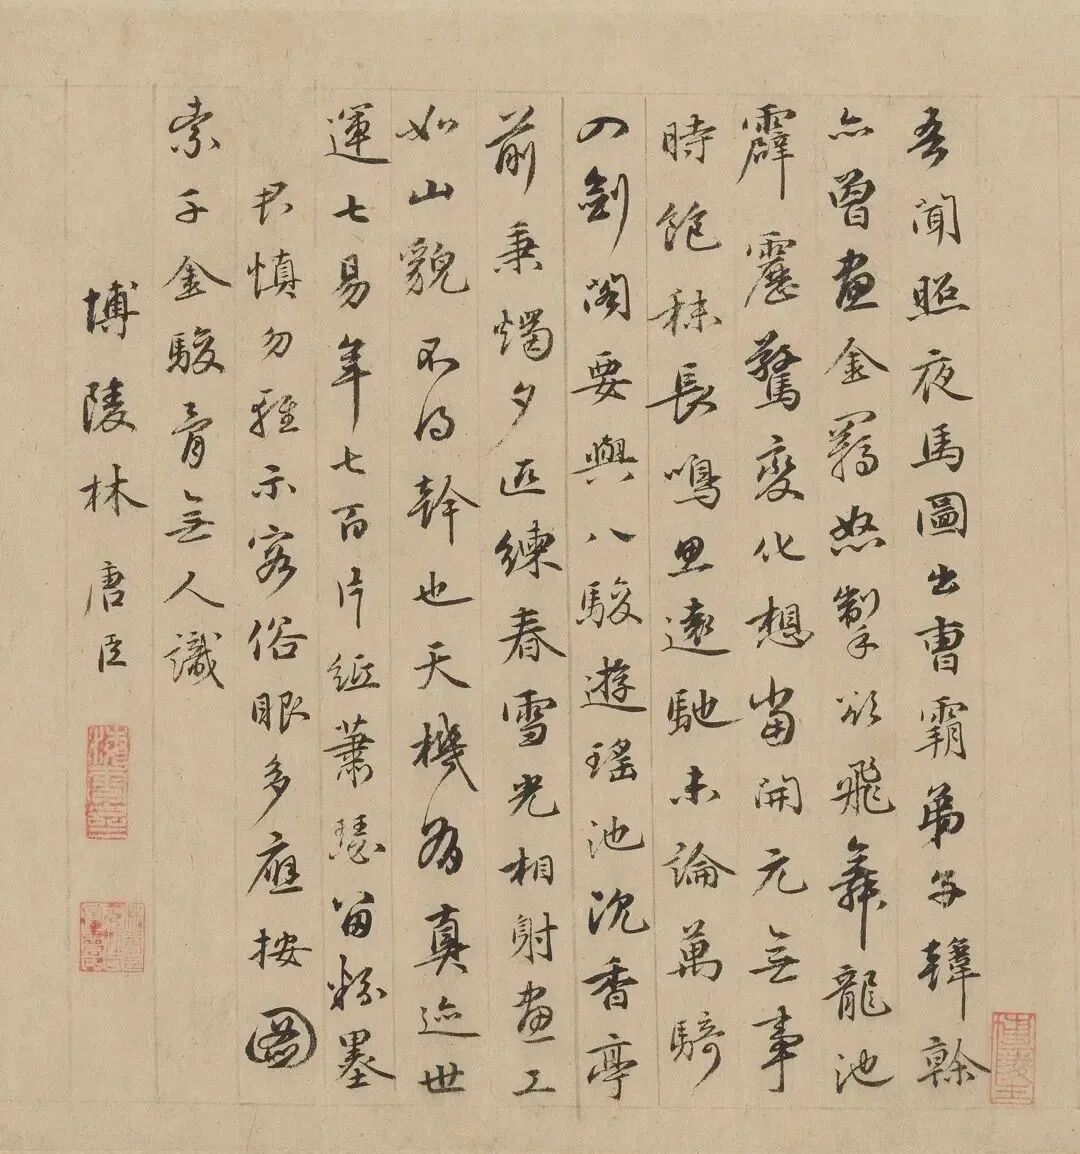 吾聞照夜馬圖出曹霸弟子韓幹
亦曾畫金羈怒掣欲飛舞龍池
霹靂驚變化想當開元無事
時飽秣長鳴思遠馳未論萬騎
入劍閣要與八駿遊瑤池沉香亭
前秉燭夕匹練春雪光相射畫工
如山貌不得幹也天機為真迹世
運七易年七百片紙蕭瑟留粉墨
君慎勿輕示客俗眼多應按圖
索千金駿骨無人識
博陵林唐臣